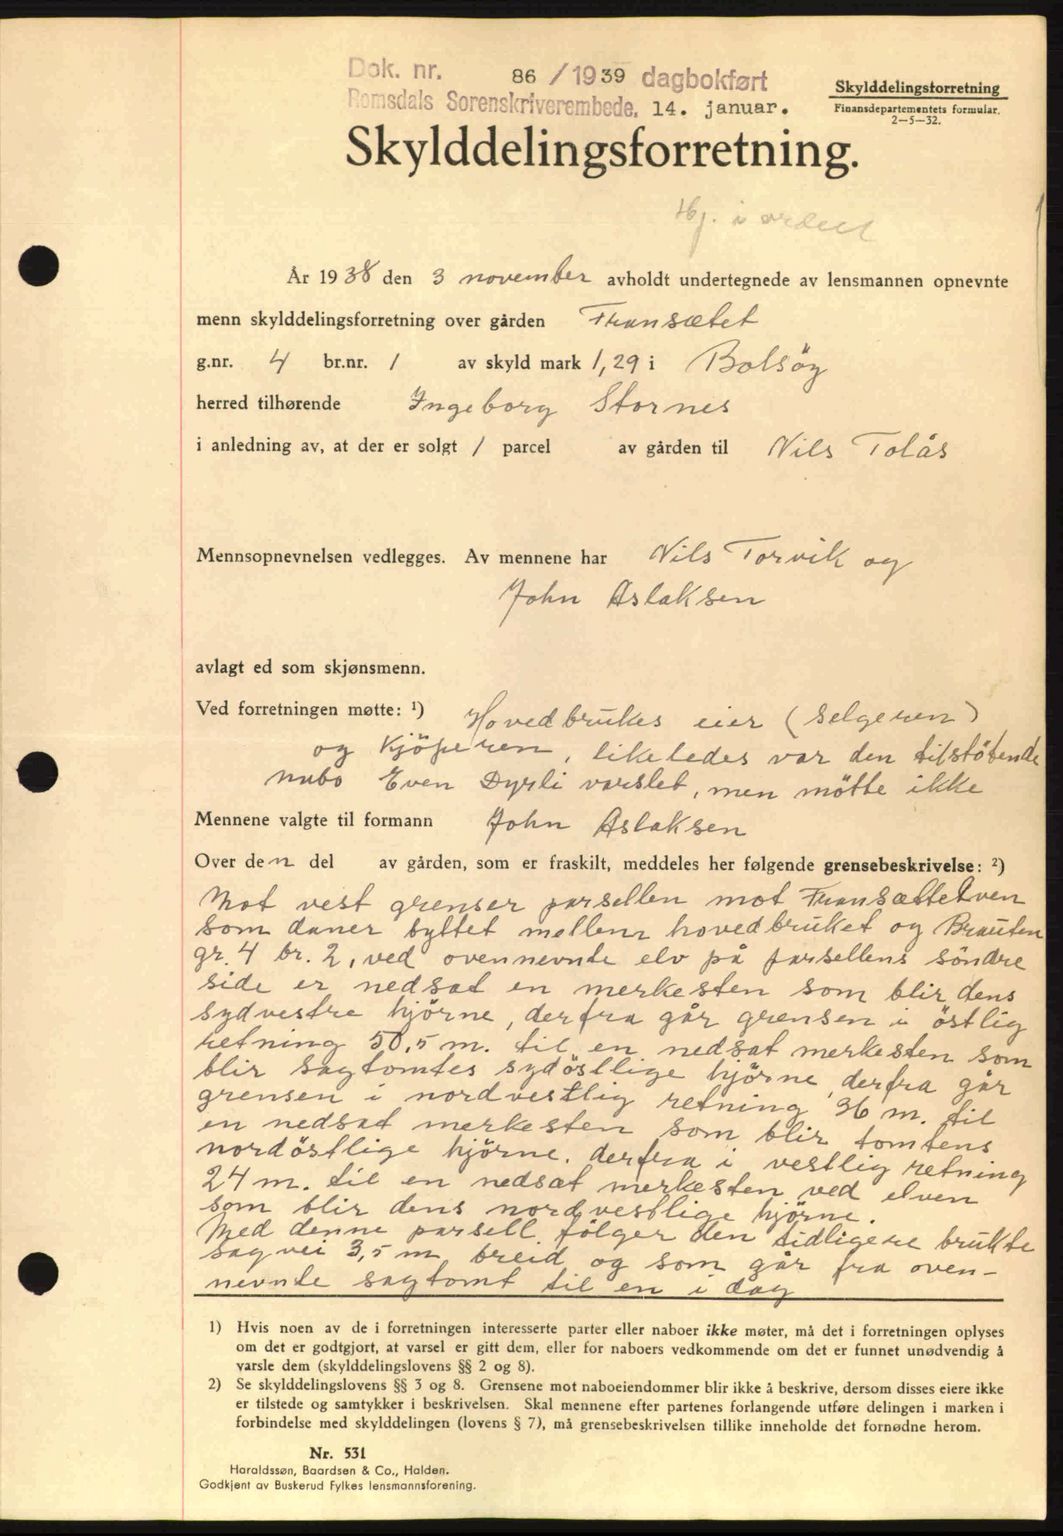 Dok. nr. 86 / 1939 dagbokført
Romsdals Sorenskriverembede, 14. januar.
Skylddelingsforretning
Finansdepartementets formular.
2—5—32.
Skylddelingsforretning.
Hj. i orden
År 1938 den 3 november avholdt undertegnede av lensmannen opnevnte
menn skylddelingsforretning over gården Fransætet
g.nr. 4 br.nr. 1 av skyld mark 1,29 i Bolsöy
herred tilhørende Ingeborg Stornes
i anledning av, at der er solgt 1 parcel av gården til Nils Tolås
Mennsopnevnelsen vedlegges. Av mennene har Nils Torvik og
John Aslaksen
avlagt ed som skjønsmenn.
Ved forretningen møtte: ¹) Hovedbrukes eier (selgeren)
og kjöperen, likeledes var den tilstötende
nabo Even Dyrli varslet, men mötte ikke
Mennene valgte til formann John Aslaksen
Over den del av gården, som er fraskilt, meddeles her følgende grensebeskrivelse: ²)
Mot vest grenser parsellen mot Fransættelven
som daner byttet mellem hovedbruket og Brauten
gr. 4 br. 2, ved ovennevnte elv på parsellens söndre
side er nedsat en merkesten som blir dens
sydvestre hjörne, derfra går grensen i östlig
retning 50,5 m. til en nedsat merkesten som
blir sagtomtes sydöstlige hjörne, derfra går
grensen i nordvestlig retning 36 m. til
en nedsat merkesten som blir tomtens
nordöstlige hjörne. derfra i vestlig retning
24 m. til en nedsat merkesten ved elven
som blir dens nordvestlige hjörne.
Med denne parsell fölger den tidligere brukte
sagvei 3,5 m breid og som går fra oven-
nevnte sagtomt til en i dag
1) Hvis noen av de i forretningen interesserte parter eller naboer ikke møter, må det i forretningen oplyses
om det er godtgjort, at varsel er gitt dem, eller for naboers vedkommende om det er funnet unødvendig å
varsle dem (skylddelingslovens §§ 2 og 8).
2) Se skylddelingslovens §§ 3 og 8. Grensene mot naboeiendommer blir ikke å beskrive, dersom disses eiere ikke
er tilstede og samtykker i beskrivelsen. Skal mennene efter partenes forlangende utføre delingen i marken i
forbindelse med skylddelingen (lovens § 7), må grensebeskrivelsen tillike inneholde det fornødne herom.
Nr. 531
Haraldssøn, Baardsen & Co., Halden.
Godkjent av Buskerud Fylkes lensmannsforening.